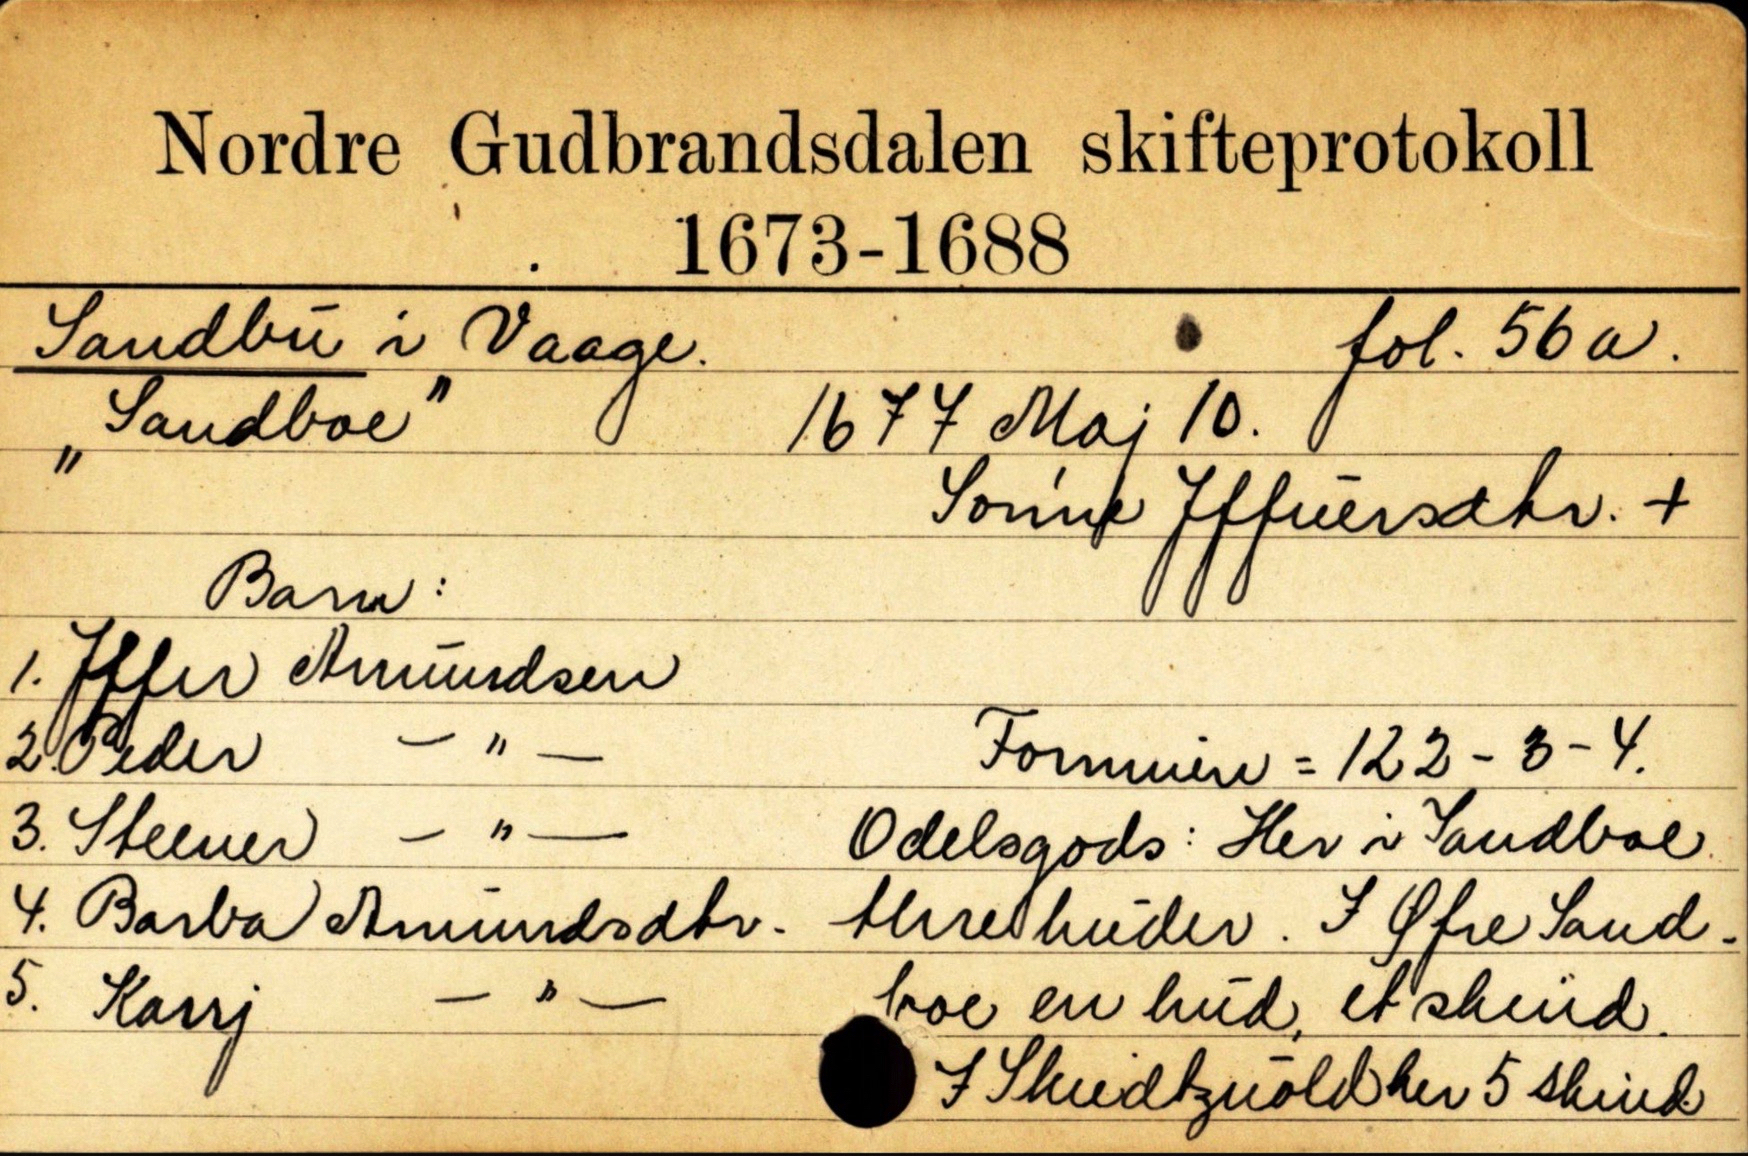 Nordre Gudbrandsdalen skifteprotokoll
1673-1688
Sandbu i Vaage. fol. 56 a.
"Sandboe" 1677 Maj 10.
Iffuersdtr. +
Barn:
1. Iffer Amundsen
2. Peder - " - Formuen = 122 - 3 - 4.
3. Steener - " - Odelsgods: Her i Sandboe
4. Barba Amundsdtr. thre huder. I Øfre Sand-
5. Karrj - " - boe en hud, et skind.
I her 5 skind